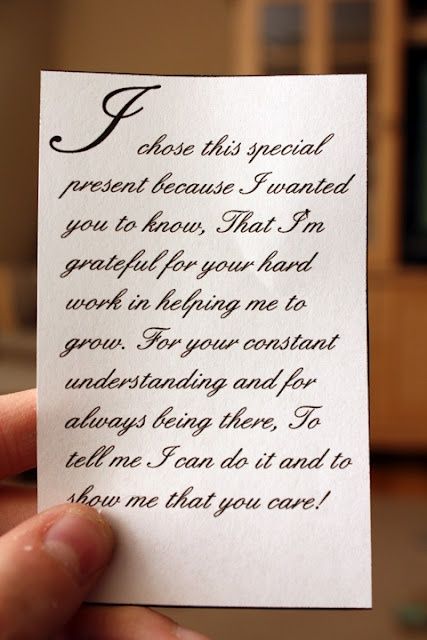 I chose this special
present because I wanted
you to know, That I'm
grateful for your hard
work in helping me to
grow. For your constant
understanding and for
always being there, To
tell me I can do it and to
show me that you care!